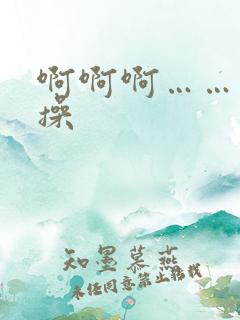 啊啊啊……
操
知墨慕燕
未经同意禁止转找